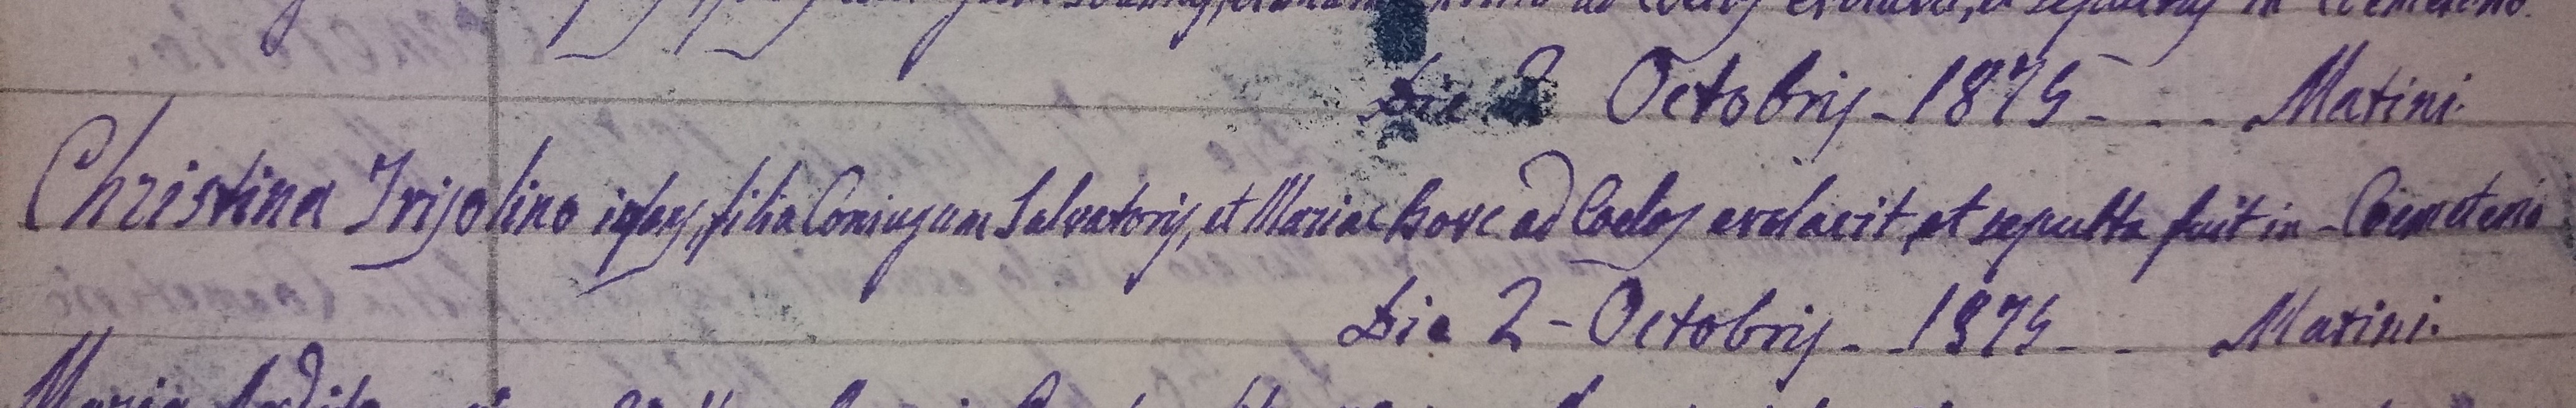 ad Coelos evolavit, et sepultus in Coemeterio.
Die 2 Octobris - 1875 - - - Matini.
Christina Trisolino infans, filia Coniugum Salvatoris, et Mariae Bove ad Coelos evolavit, et sepulta fuit in - Coemeterio
Die 2 - Octobris - - 1875 - - Matini.
Maria